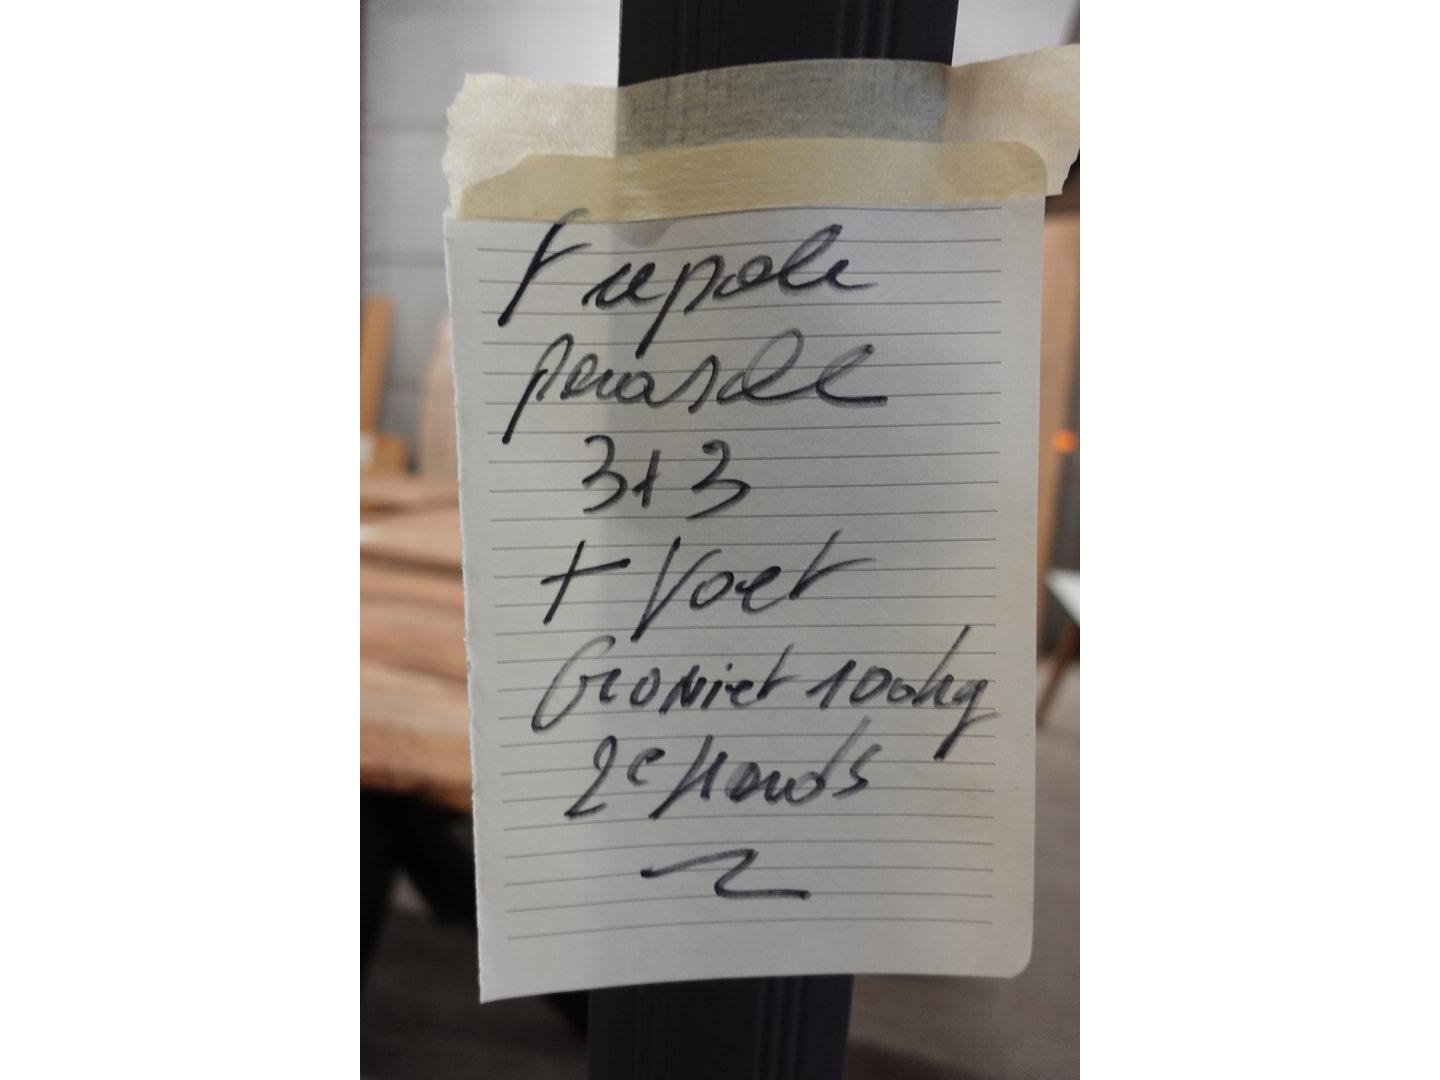 Freepole
parasol
3+3
+ Voet
Graniet 100kg
2e hands